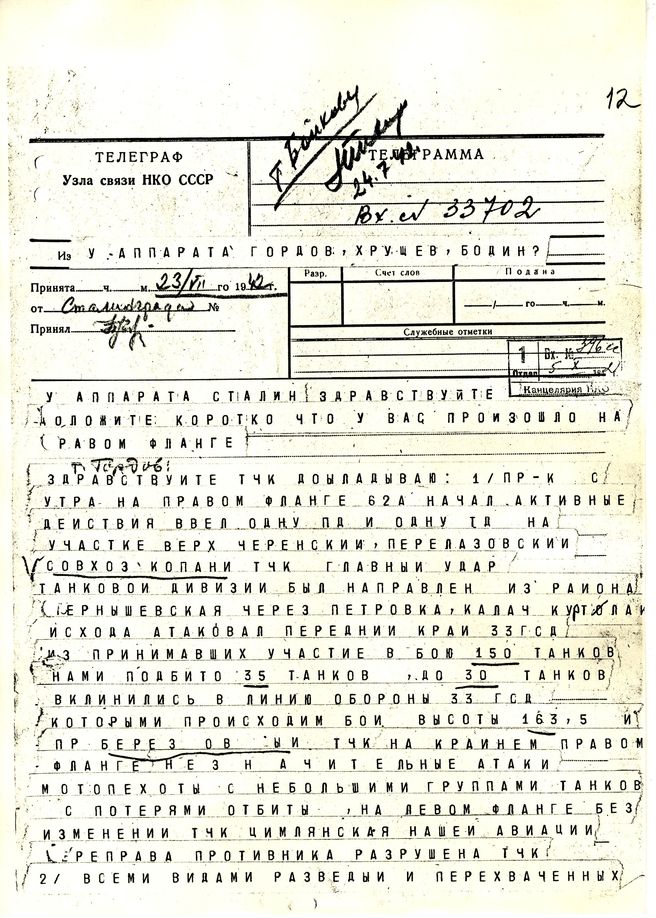 12
т. Бойкову
24.7
ТЕЛЕГРАФ
Узла связи НКО СССР
ТЕЛЕГРАММА
Вх. № 33702
Из У АППАРАТА ГОРДОВ, ХРУШЕВ, БОДИН?
Принята ч. м. 23/VII го 1942 г.
от Сталинграда №
Принял
Разр. Счет слов Подана
/ го ч. м.
Служебные отметки
1 Вх. №
Отдел 5 X
Канцелярия НКО
У АППАРАТА СТАЛИН ЗДРАВСТВУЙТЕ
ДОЛОЖИТЕ КОРОТКО ЧТО У ВАС ПРОИЗОШЛО НА
РАВОМ ФЛАНГЕ
т. Гордов:
ЗДРАВСТВУИТЕ ТЧК ДОЫЛАДЫВАЮ: 1/ПР-К С
УТРА НА ПРАВОМ ФЛАНГЕ 62А НАЧАЛ АКТИВНЫЕ
ДЕЙСТВИЯ ВВЕЛ ОДНУ ПД И ОДНУ ТД НА
УЧАСТКЕ ВЕРХ ЧЕРЕНСКИИ, ПЕРЕЛАЗОВСКИИ
СОВХОЗ КОПАНИ ТЧК ГЛАВНЫИ УДАР
ТАНКОВОИ ДИВИЗИИ БЫЛ НАПРАВЛЕН ИЗ РАИОНА
ЕРНЫШЕВСКАЯ ЧЕРЕЗ ПЕТРОВКА, КАЛАЧ КУРТОЛАИ
ИСХОДА АТАКОВАЛ ПЕРЕДНИИ КРАИ 33ГСД
ИЗ ПРИНИМАВШИХ УЧАСТИЕ В БОЮ 150 ТАНКОВ
НАМИ ПОДБИТО 35 ТАНКОВ , ДО 30 ТАНКОВ
ВКЛИНИЛИСЬ В ЛИНИЮ ОБОРОНЫ 33 ГСД
КОТОРЫМИ ПРОИСХОДИМ БОИ ВЫСОТЫ 163,5 И
ПР БЕРЕЗ ОВ ЫИ ТЧК НА КРАИНЕМ ПРАВОМ
ФЛАНГЕ НЕЗ Н А ЧИТЕЛЬНЫЕ АТАКИ
МОТОПЕХОТЫ С НЕБОЛЬШИМИ ГРУППАМИ ТАНКОВ
С ПОТЕРЯМИ ОТБИТЫ , НА ЛЕВОМ ФЛАНГЕ БЕЗ
ИЗМЕНЕНИИ ТЧК ЦИМЛЯНСКАЯ НАШЕЙ АВИАЦИИ
ЕРЕПРАВА ПРОТИВНИКА РАЗРУШЕНА ТЧК
2/ ВСЕМИ ВИДАМИ РАЗВЕДЫИ И ПЕРЕХВАЧЕННЫХ